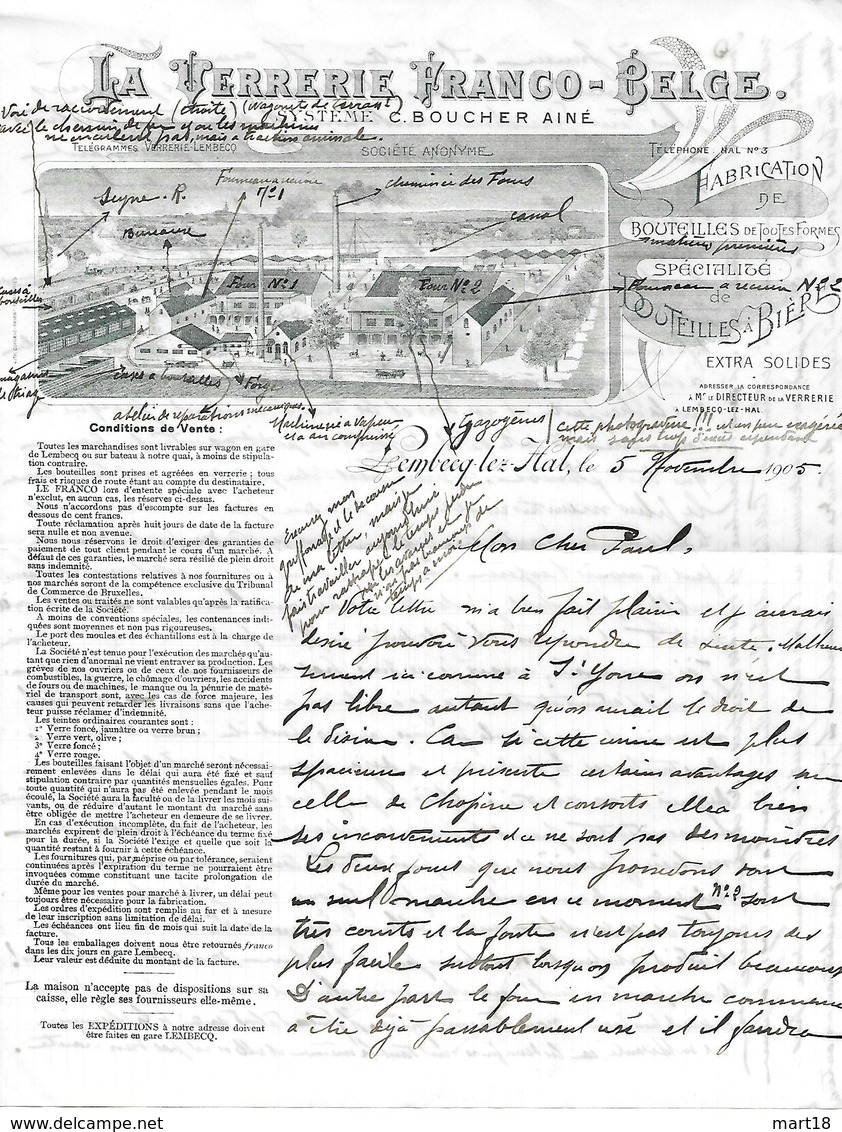 LA VERRERIE FRANCO-BELGE.
Voie de raccordement (étroite) (Wagonets de terrasst)
SYSTÈME C. BOUCHER AINÉ
avec le chemin de fer
ne circulent pas, mais à traction animale.
TÉLÉGRAMMES VERRERIE-LEMBECQ
SOCIÉTÉ ANONYME
TÉLÉPHONE HAL Nº 3
FABRICATION
DE
BOUTEILLES DE TOUTES FORMES
SPÉCIALITÉ
de
BOUTEILLES À BIÈRE
EXTRA SOLIDES
ADRESSER LA CORRESPONDANCE
A Mr LE DIRECTEUR DE LA VERRERIE
A LEMBECQ-LEZ-HAL.
Fourneau à recuire
nº 1
cheminée des Fours
canal
Bureaux
matières premières
Four Nº 1
Four Nº 2
Fourneau à recuire Nº 2
cases à bouteilles
Forge
atelier de réparations mécaniques.
Machinerie à vapeur
et à air comprimé
gazogènes
cette photogravure !!! est un peu exagérée
mais sans trop d'excès cependant
Lembecq-lez-Hal, le 5 Novembre 1905.
Conditions de Vente :
Toutes les marchandises sont livrables sur wagon en gare
de Lembecq ou sur bateau à notre quai, à moins de stipula-
tion contraire.
Les bouteilles sont prises et agréées en verrerie ; tous
frais et risques de route étant au compte du destinataire.
LE FRANCO lors d'entente spéciale avec l'acheteur
n'exclut, en aucun cas, les réserves ci-dessus.
Nous n'accordons pas d'escompte sur les factures en
dessous de cent francs.
Toute réclamation après huit jours de date de la facture
sera nulle et non avenue.
Nous nous réservons le droit d'exiger des garanties de
paiement de tout client pendant le cours d'un marché. A
défaut de ces garanties, le marché sera résilié de plein droit
sans indemnité.
Toutes les contestations relatives à nos fournitures ou à
nos marchés seront de la compétence exclusive du Tribunal
de Commerce de Bruxelles.
Les ventes ou traités ne sont valables qu'après la ratifica-
tion écrite de la Société.
A moins de conventions spéciales, les contenances indi-
quées sont moyennes et non pas rigoureuses.
Le port des moules et des échantillons est à la charge de
l'acheteur.
La Société n'est tenue pour l'exécution des marchés qu'au-
tant que rien d'anormal ne vient entraver sa production. Les
grèves de nos ouvriers ou de ceux de nos fournisseurs de
combustibles, la guerre, le chômage d'ouvriers, les accidents
de fours ou de machines, le manque ou la pénurie de maté-
riel de transport sont, avec les cas de force majeure, les
causes qui peuvent retarder les livraisons sans que l'ache-
teur puisse réclamer d'indemnité.
Les teintes ordinaires courantes sont :
1º Verre foncé, jaunâtre ou verre brun ;
2º Verre vert, olive ;
3º Verre foncé ;
4º Verre rouge.
Les bouteilles faisant l'objet d'un marché seront nécessai-
rement enlevées dans le délai qui aura été fixé et sauf
stipulation contraire par quantités mensuelles égales. Pour
toute quantité qui n'aura pas été enlevée pendant le mois
écoulé, la Société aura la faculté ou de la livrer les mois sui-
vants, ou de réduire d'autant le montant du marché sans
être obligée de mettre l'acheteur en demeure de se livrer.
En cas d'exécution incomplète, du fait de l'acheteur, les
marchés expirent de plein droit à l'échéance du terme fixé
pour la durée, si la Société l'exige et quelle que soit la
quantité restant à fournir à cette échéance.
Les fournitures qui, par méprise ou par tolérance, seraient
continuées après l'expiration du terme ne pourraient être
invoquées comme constituant une tacite prolongation de
durée du marché.
Même pour les ventes pour marché à livrer, un délai peut
toujours être nécessaire pour la fabrication.
Les ordres d'expédition sont remplis au fur et à mesure
de leur inscription sans limitation de délai.
Les échéances ont lieu fin de mois qui suit la date de la
facture.
Tous les emballages doivent nous être retournés franco
dans les dix jours en gare Lembecq.
Leur valeur est déduite du montant de la facture.
La maison n'accepte pas de dispositions sur sa
caisse, elle règle ses fournisseurs elle-même.
Toutes les EXPÉDITIONS à notre adresse doivent
être faites en gare LEMBECQ.
Excusez mon
griffonage et le décousu
de ma lettre, mais je
fais travailler aujourd'hui
pour rattraper le temps perdu
temps à moi
Mon cher Paul,
Votre lettre m'a bien fait plaisir et j'aurais
désiré pouvoir vous répondre de suite. Malheureu
sement ici comme à St Yorre on n'est
pas libre autant qu'on aurait le droit de
le désirer. Car si cette usine est plus
spacieuse et présente certains avantages sur
celle de Chopine et consorts elle a bien
ses inconvénients et ce ne sont pas des moindres
Les deux fours que nous possédons dont
un seul marche en ce moment Nº 2 sont
très courts et la fonte n'est pas toujours des
plus facile surtout lorsqu'on produit beaucoup
D'autre part le four en marche commence
à être déjà passablement usé et il faudra
mart18